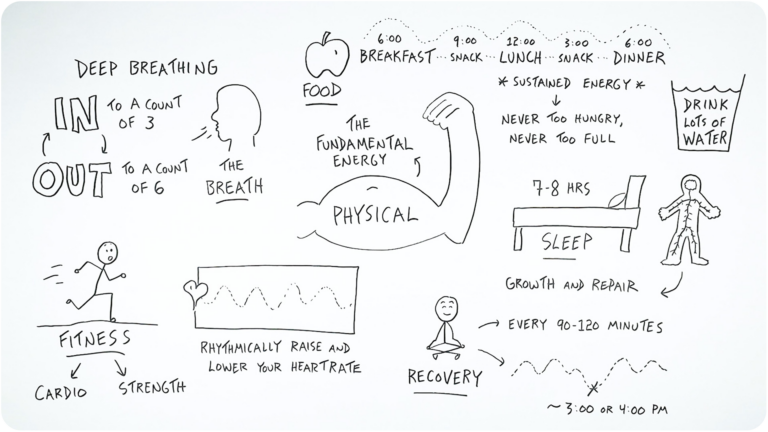 DEEP BREATHING
IN
TO A COUNT
OF 3
OUT
TO A COUNT
OF 6
THE
BREATH
FOOD
6:00
BREAKFAST
9:00
SNACK
12:00
LUNCH
3:00
SNACK
6:00
DINNER
* SUSTAINED ENERGY *
NEVER TOO HUNGRY,
NEVER TOO FULL
DRINK
LOTS OF
WATER
THE
FUNDAMENTAL
ENERGY
PHYSICAL
7-8 HRS
SLEEP
GROWTH AND REPAIR
FITNESS
CARDIO
STRENGTH
RHYTHMICALLY RAISE AND
LOWER YOUR HEARTRATE
RECOVERY
EVERY 90-120 MINUTES
~ 3:00 OR 4:00 PM